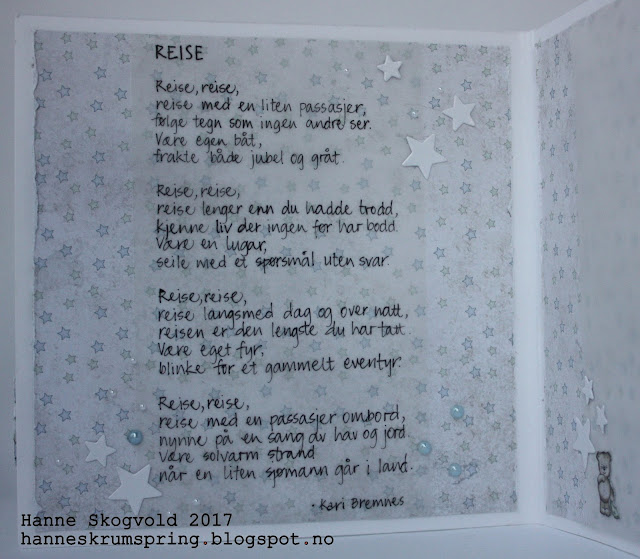 REISE
Reise, reise,
reise med en liten passasjer,
følge tegn som ingen andre ser.
Være egen båt,
frakte både jubel og gråt.
Reise, reise,
reise lenger enn du hadde trodd,
kjenne liv der ingen før har bodd.
Være en lugar,
seile med et spørsmål uten svar.
Reise, reise,
reise langsmed dag og over natt,
reisen er den lengste du har tatt.
Være eget fyr,
blinke for et gammelt eventyr.
Reise, reise,
reise med en passasjer ombord,
nynne på en sang du hav og jord.
Være solvarm strand
når en liten sjømann går i land.
- Kari Bremnes
Hanne Skogvold 2017
hanneskrumspring.blogspot.no